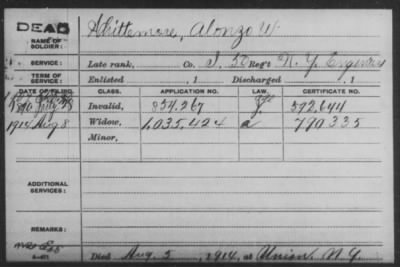 DEAD
NAME OF SOLDIER: Whittemore, Alonzo W.
SERVICE: Late rank, Co. I, 50 Reg't N.Y. Engineers
TERM OF SERVICE: Enlisted , 1 Discharged , 1
DATE OF FILING. CLASS. APPLICATION NO. LAW. CERTIFICATE NO.
1890 July Invalid, 854.267 592.644
1914 Aug 8 Widow, 1,035.424 a 790335
Minor,
ADDITIONAL SERVICES:
REMARKS:
Died Aug. 5, 1914, at Union, N.Y.